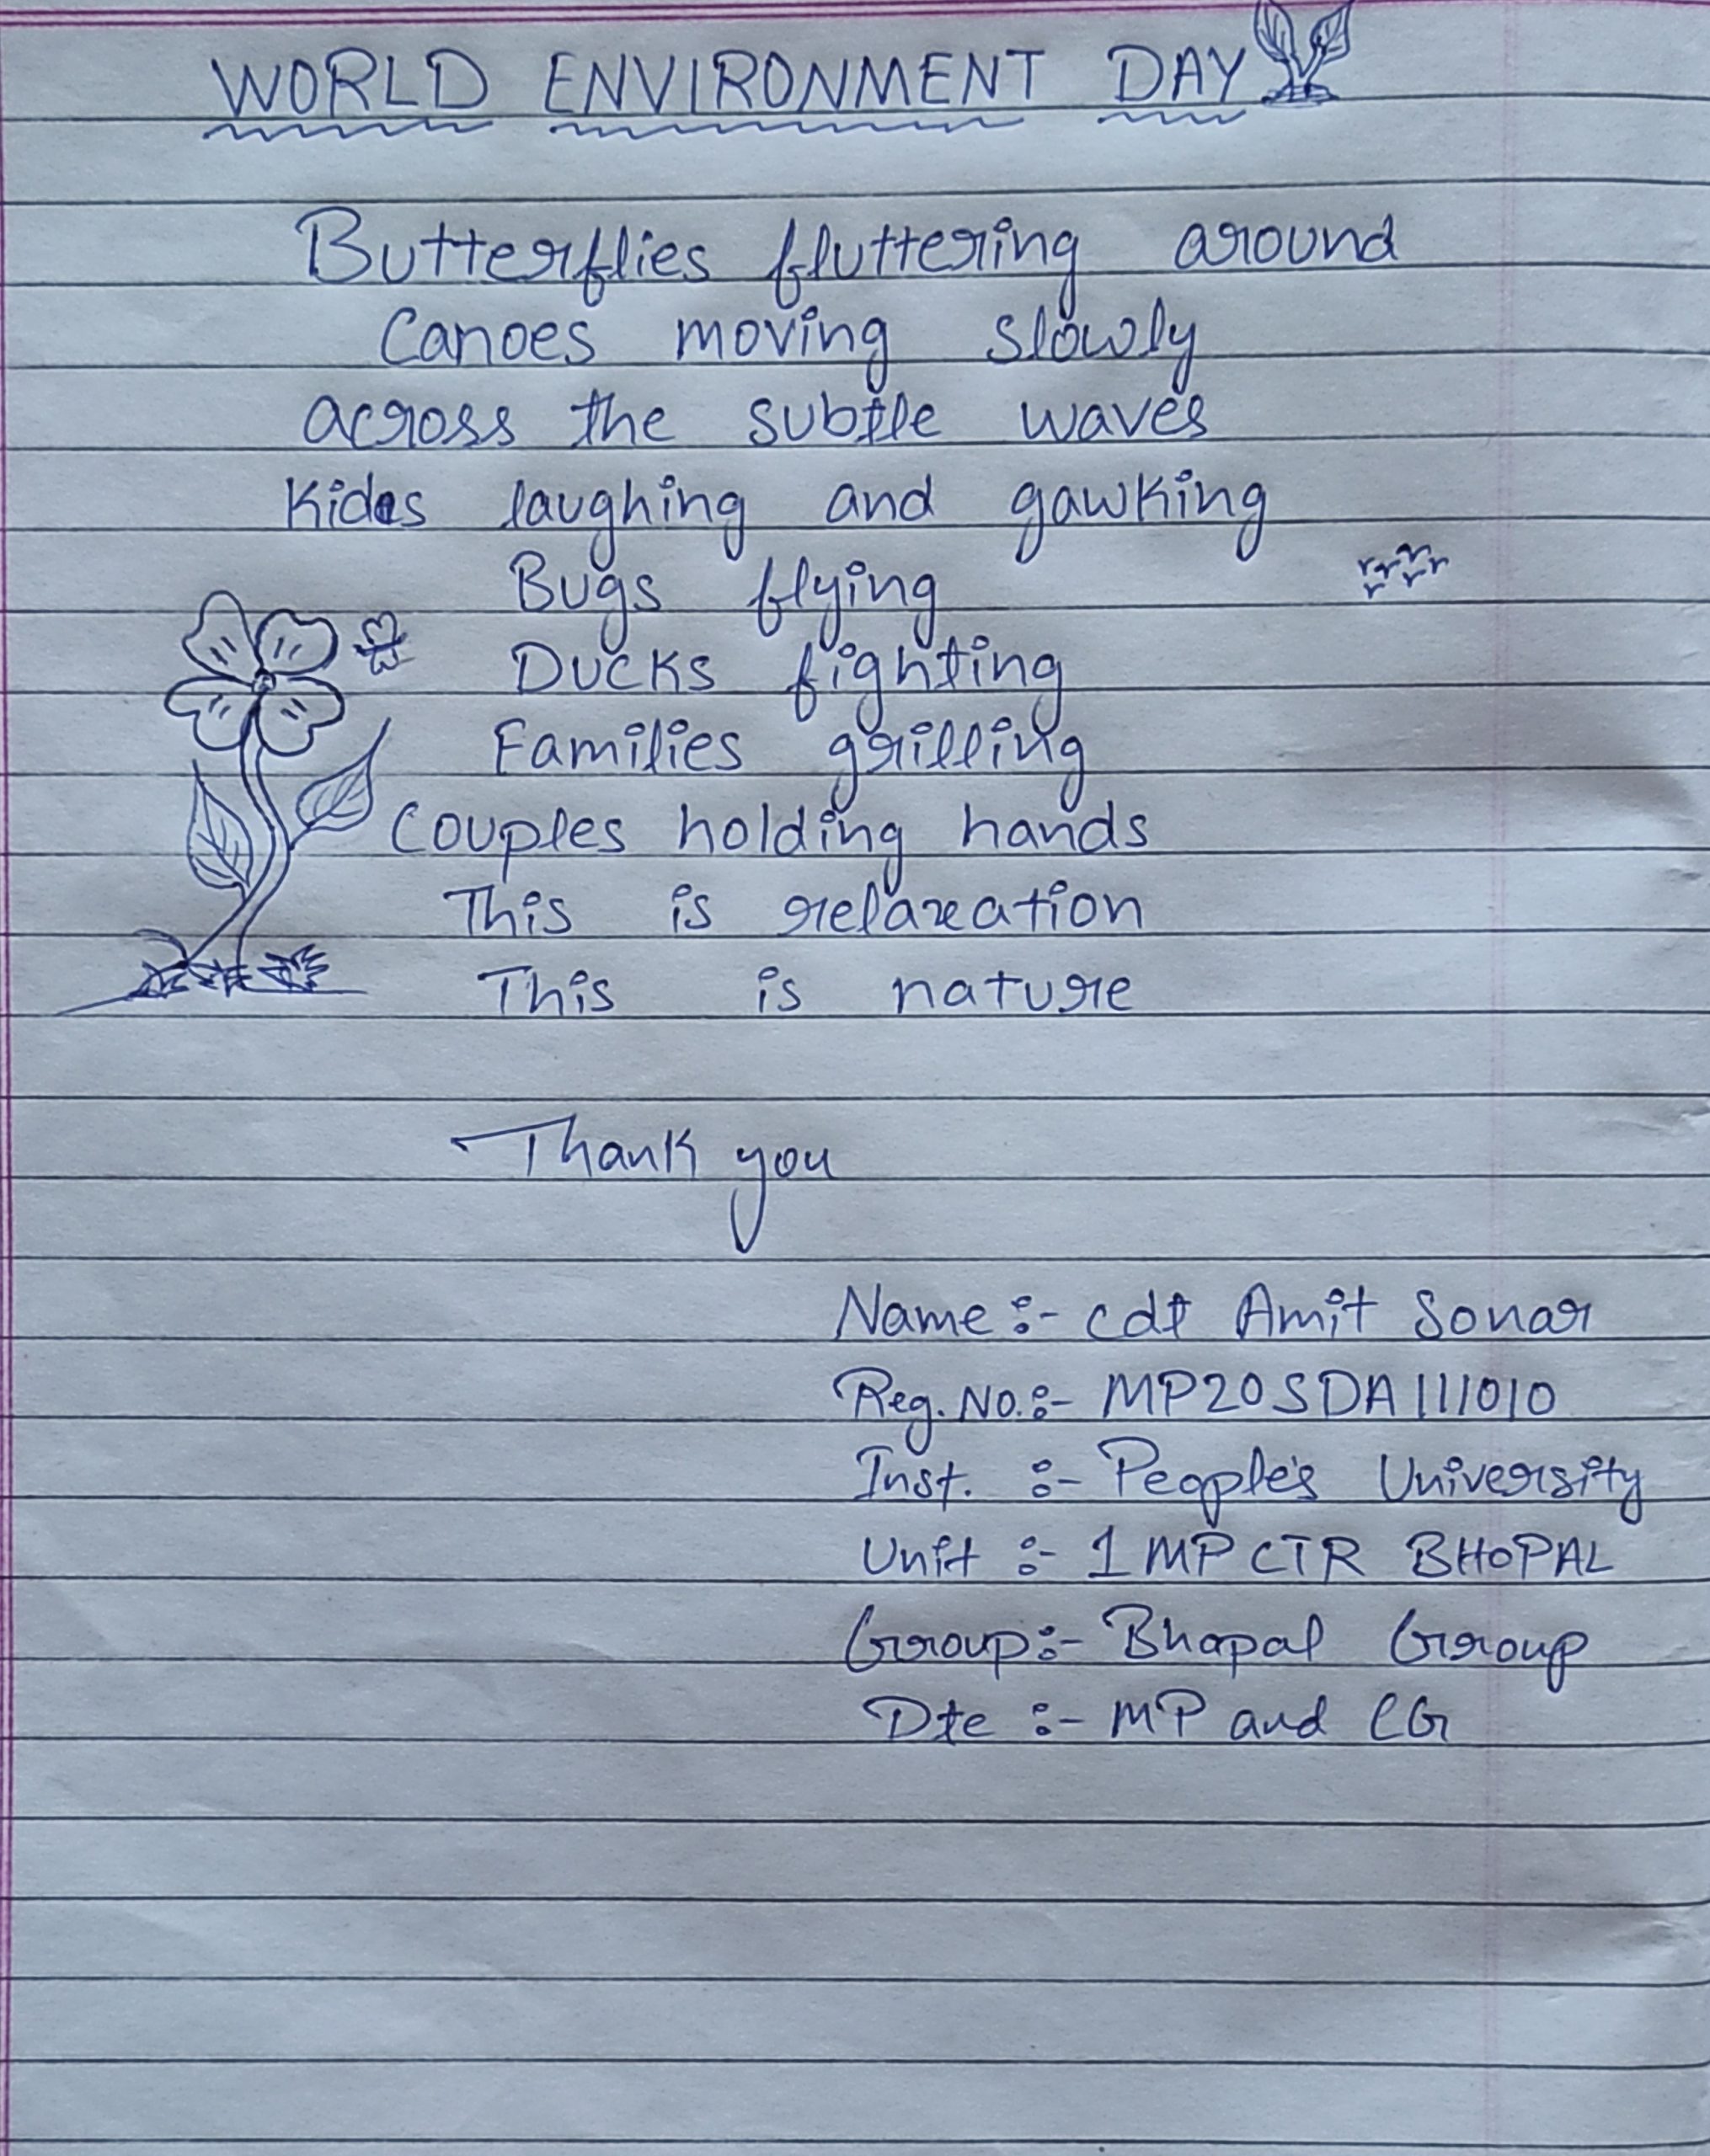 WORLD ENVIRONMENT DAY
Butterflies fluttering around
Canoes moving slowly
across the subtle waves
Kides laughing and gawking
Bugs flying
Ducks fighting
Families grilling
Couples holding hands
This is relaxation
This is nature
Thank you
Name :- cdt Amit Sonar
Reg. No. :- MP20SDA111010
Inst. :- People's University
Unit :- 1 MP CTR BHOPAL
Group :- Bhopal Group
Dte :- MP and CG